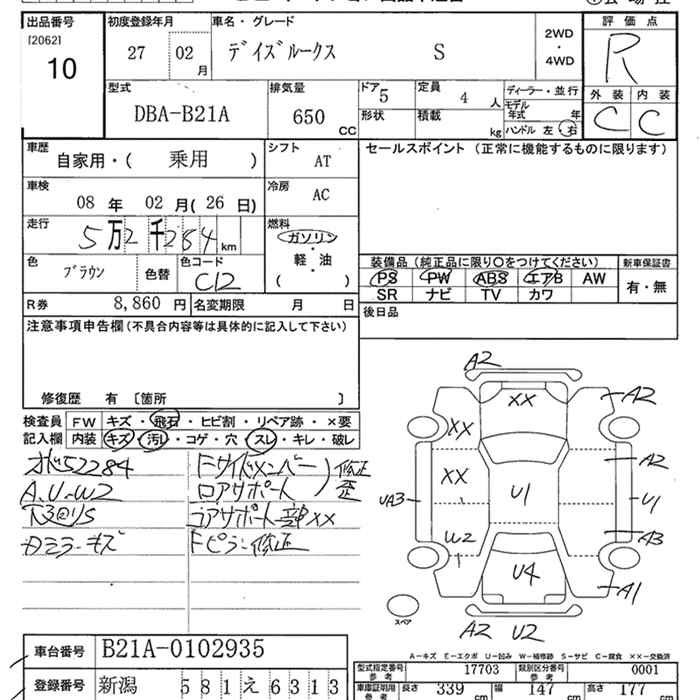 出品番号 初度登録年月 車名・グレード 評価点
[2062] 27 02 月 デイズルークス S 2WD・4WD R
10
型式 排気量 ドア 定員 ディーラー・並行 外装 内装
DBA-B21A 650 CC 5 4 人 モデル年式 年 C C
形状 積載 kg ハンドル 左 右
車歴 シフト セールスポイント (正常に機能するものに限ります)
自家用・( 乗用 ) AT
車検 冷房
08 年 02 月( 26 日) AC
走行 燃料
5万2千284km ガソリン・軽・油
( )
装備品 (純正品に限り○をつけてください) 新車保証書
色 ブラウン 色替 色コード C12
PS PW ABS エアB AW 有・無
SR ナビ TV カワ
R券 8,860 円 名変期限 月 日
後日品
注意事項申告欄 (不具合内容等は具体的に記入して下さい)
修復歴 有 〔箇所 〕
検査員記入欄 FW キズ・飛石・ヒビ割・リペア跡・×要
内装 キズ・汚レ・コゲ・穴・スレ・キレ・破レ
52284
A、U-W2
Fサイドメンバー 修正
コアサポート 歪
コアサポート一部××
Fピラー修正
ミラーキズ
A2
XX A2
XX
XX A2
UA3 U1 U1
W2 A3
U4 A1
スペア
A2 U2
A-キズ E-エクボ U-凹み W-補修跡 S-サビ C-腐食 ××-交換済
車台番号 B21A-0102935
型式指定番号 参考 17703 類別区分番号 参考 0001
登録番号 新潟 581 え 6313
車庫証明用 参考 長さ 339 cm 幅 147 cm 高さ 177 cm